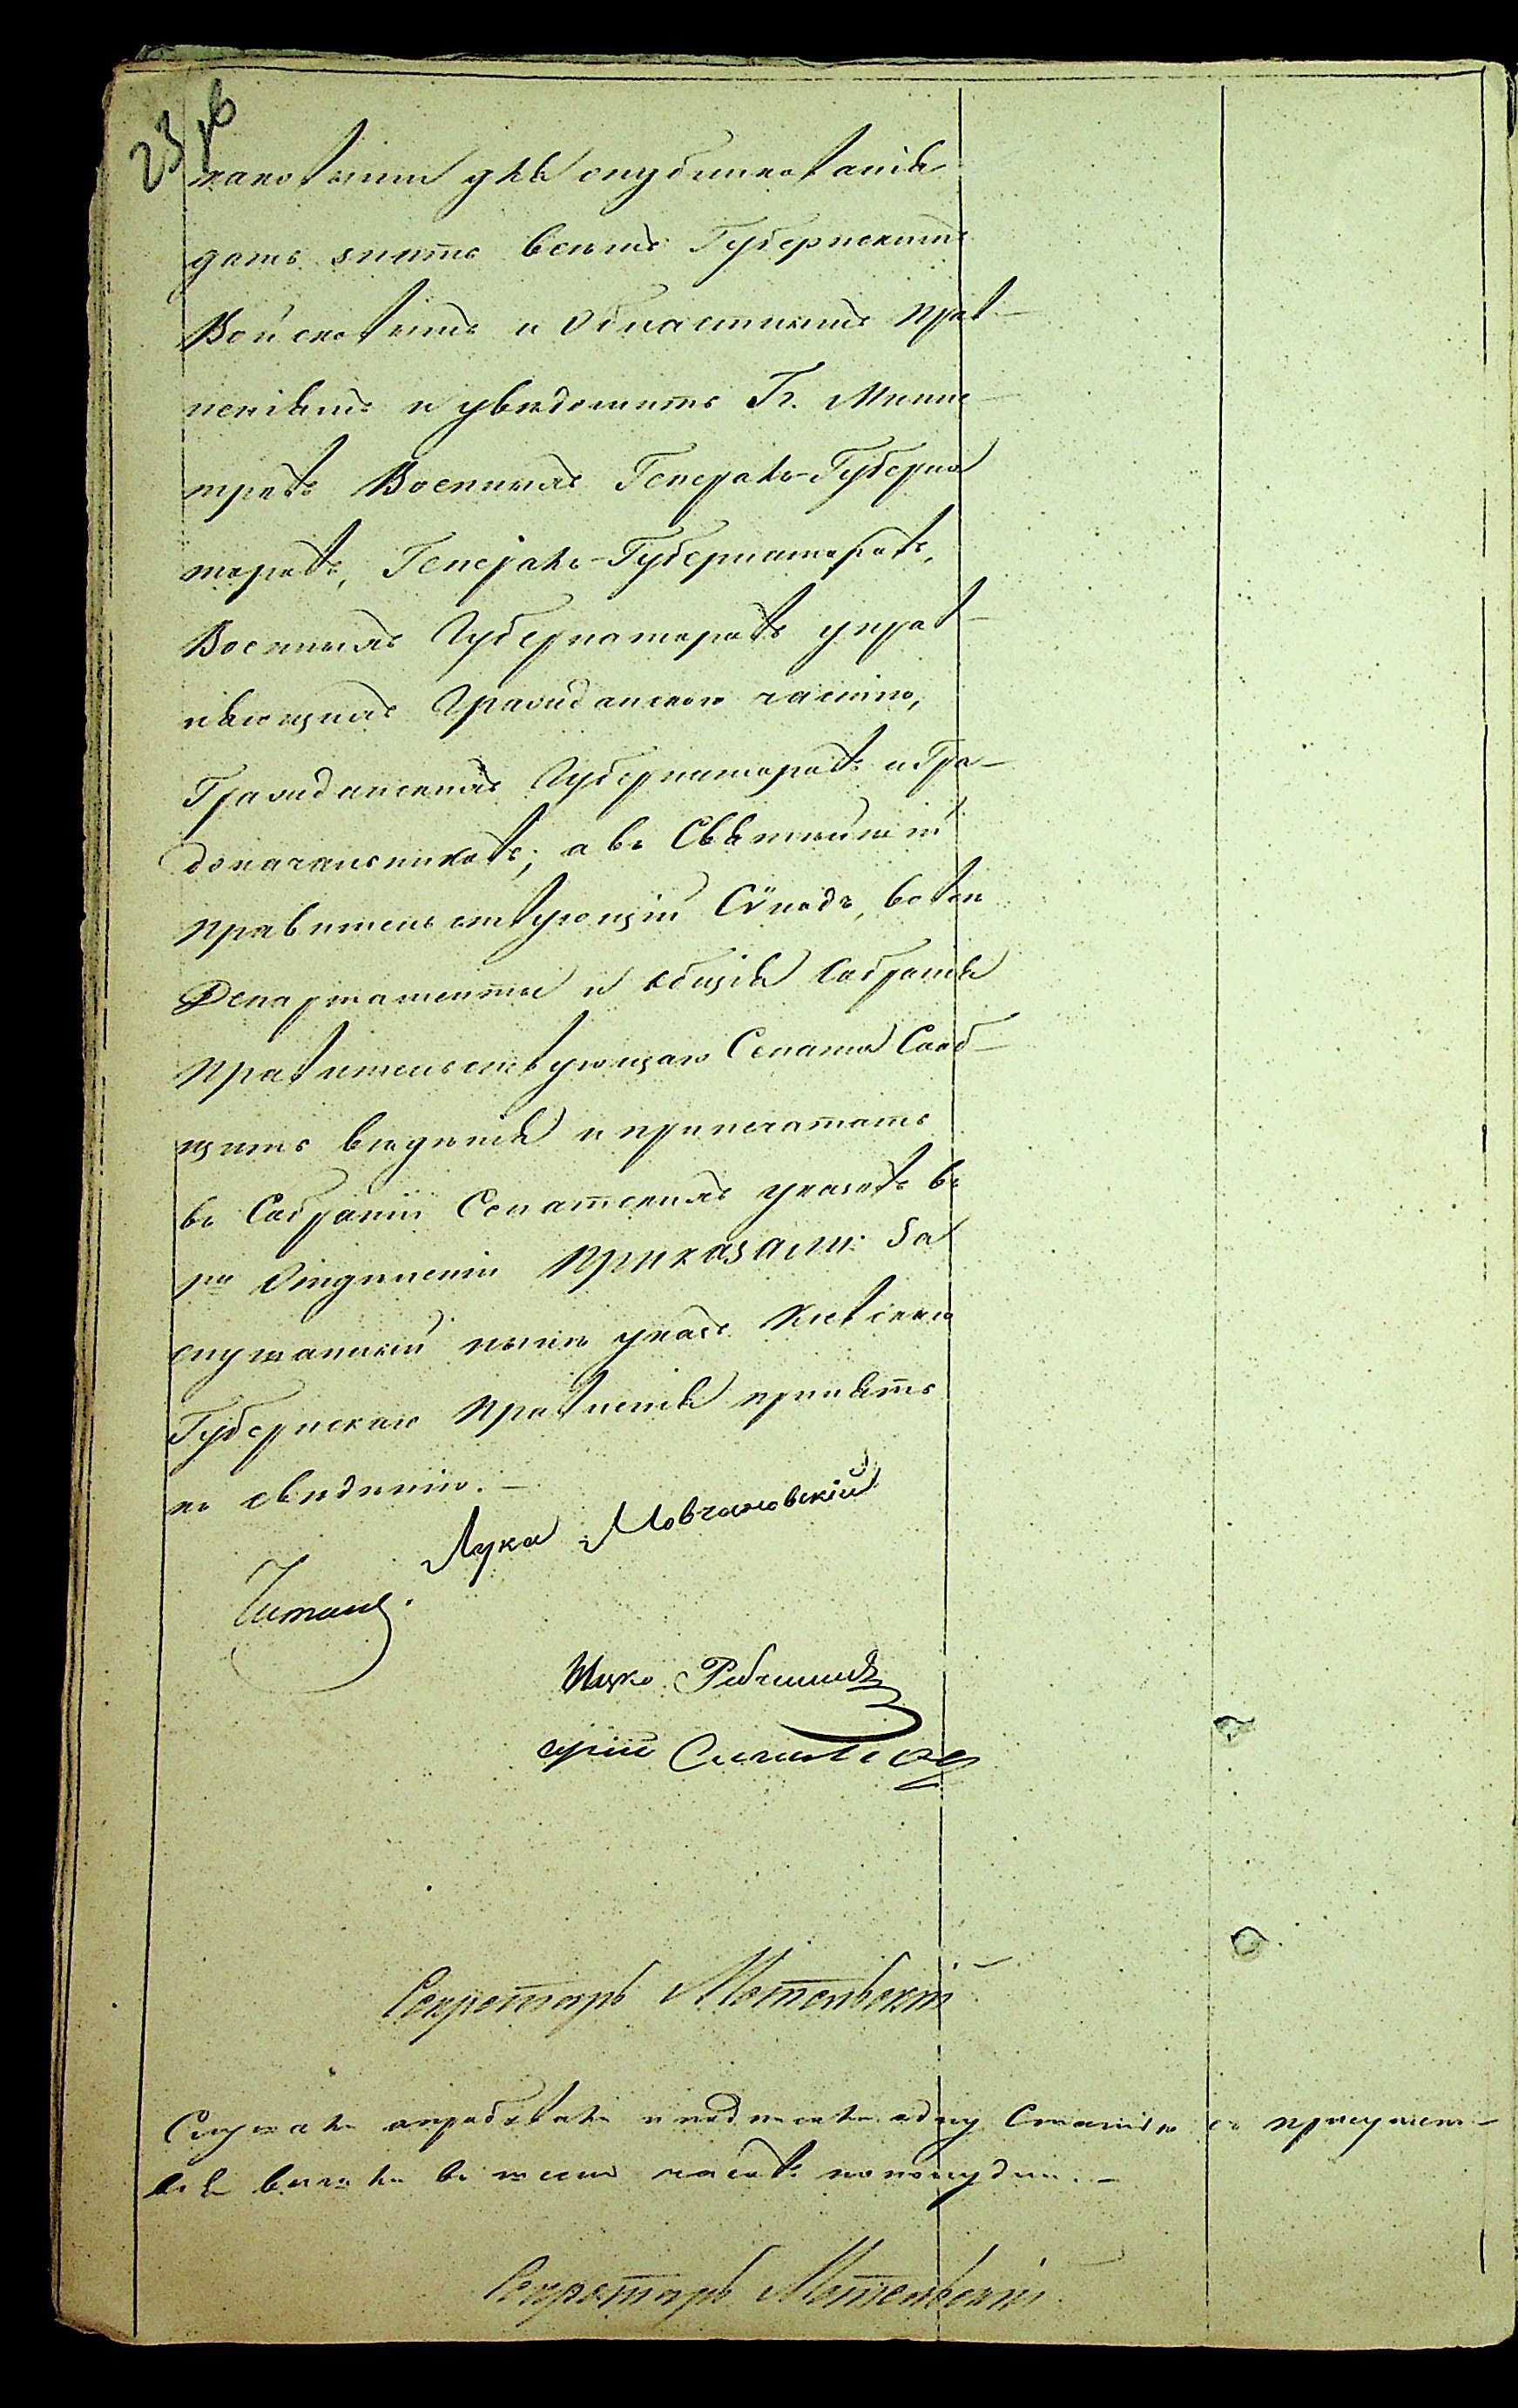 23
каковыми для опубликованія
дать знать всѣмъ Губернскимъ
Войсковымъ и Областнымъ Прав-
леніямъ и увѣдомить Гг. Мини-
тровъ Военныхъ Генералъ-Губерна
торовъ, Генералъ-Губернаторовъ,
Военныхъ Губернаторовъ управ-
ляющихъ Гражданскою частію,
Гражданскихъ Губернаторовъ и Гра-
доначальниковъ; а въ Святѣйшій
Правительствующій Сѵнодъ, во всѣ
Департаменты и общія Собранія
Правительствующаго Сената Сооб-
щить вѣдѣнія и припечатать
въ Собраніи Сенатскихъ указовъ въ
Отдѣленіи Приказали: За
слушанный нынѣ указъ Кіевскаго
Губернскаго Правленія принять
къ свѣдѣнію.-
Лука Мовчановскій
Читалъ.
Ицко
Секретарь
Слушали апробовали и подписали одну Статью съ присутст-
вія вышли въ часовъ по полудни.-
Секретарь